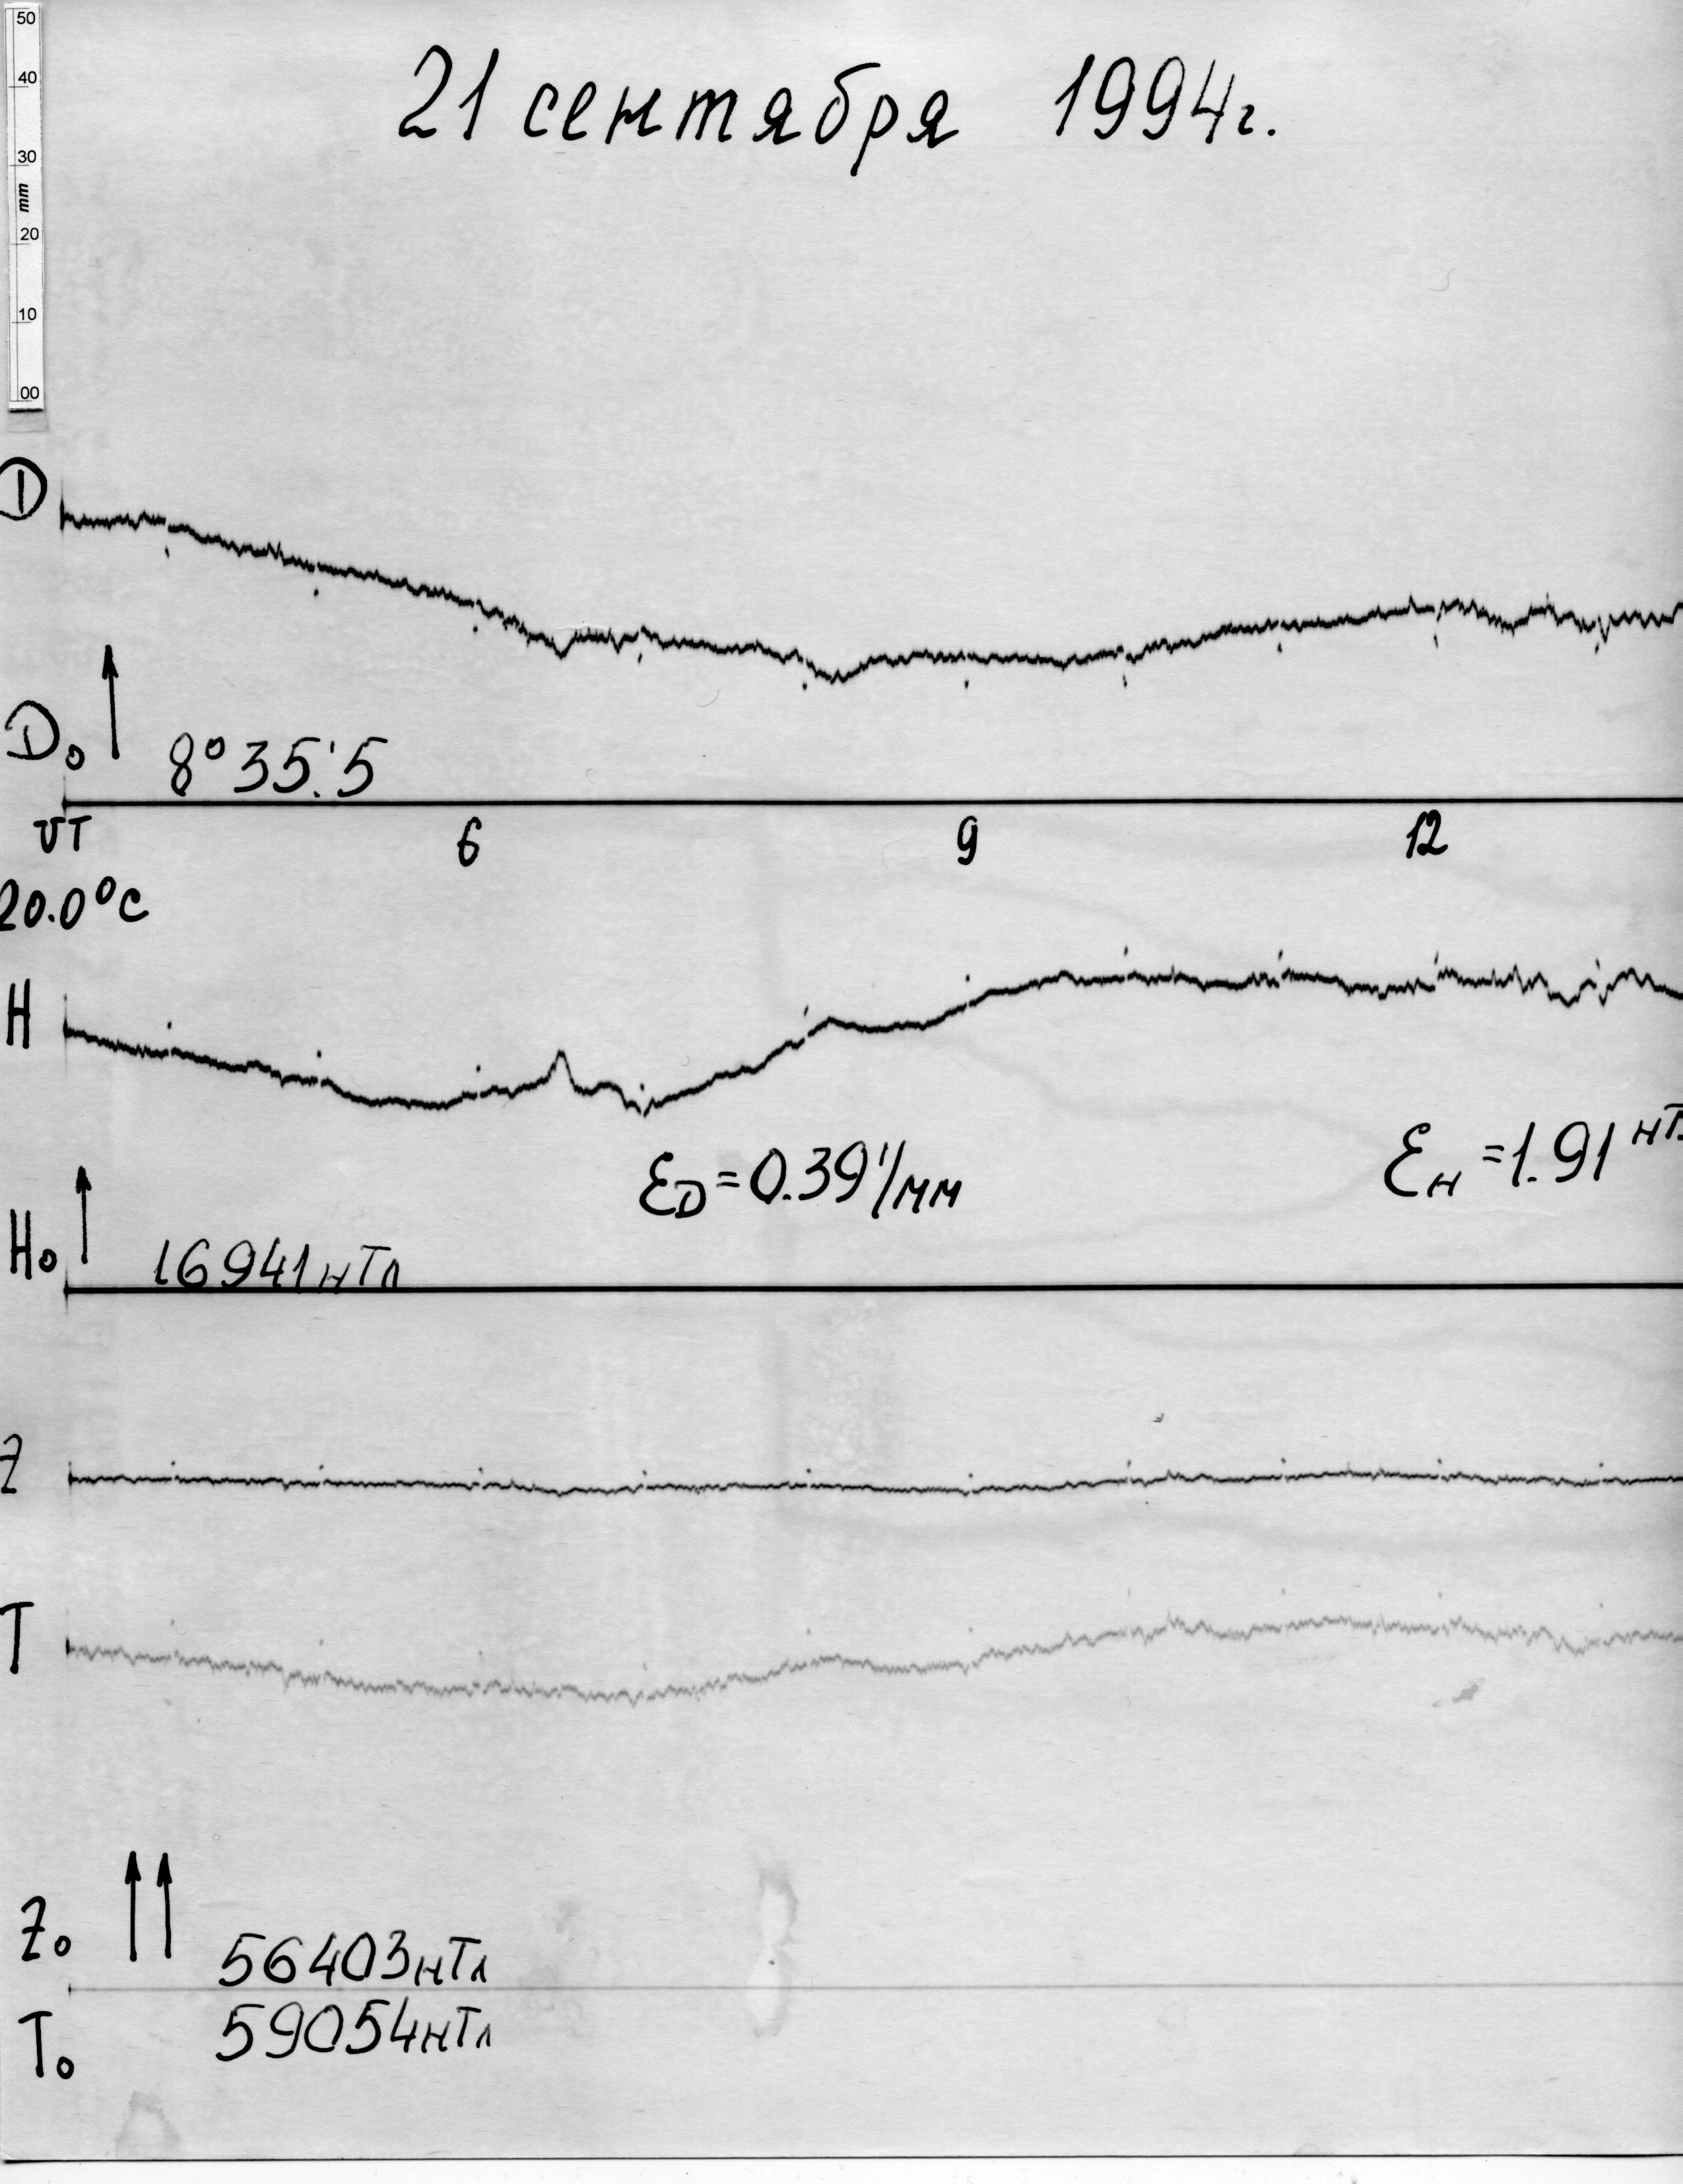 50
40
30
mm
20
10
00
21 сентября 1994г.
D
D₀ 8°35.'5
UT 6 9 12
20.0°C
H
Ɛ_D=0.39'/мм Ɛ_H=1.91 нТ
H₀ 16941нТл
Z
T
Z₀ 56403нТл
T₀ 59054нТл